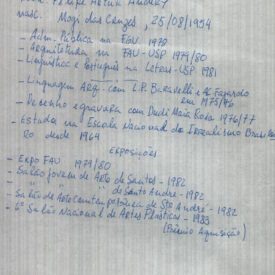 Felipe
nasc. Mogi das Cruzes, 25/08/1954
- Adm. Pública na FGV 1978
- Arquitetura na FAU-USP 1979/80
- Linguística e Português na Letras-USP 1981
- Linguagem Arq. com L.P. Baravelli e C. Fajardo em 1975/76
- Desenho e gravura com Dudi Maia Rosa 1976/77
- Estuda na Escola Nacional do
ro desde 1964
EXPOSIÇÕES
- Expo FAU 1979/80
- Salão Jovem de Arte de Santos - 1982
" " de Santo André - 1982
- Salão de Arte Contemporânea de Sto André - 1982
- 6º Salão Nacional de Artes Plásticas - 1983
(Prêmio Aquisição)